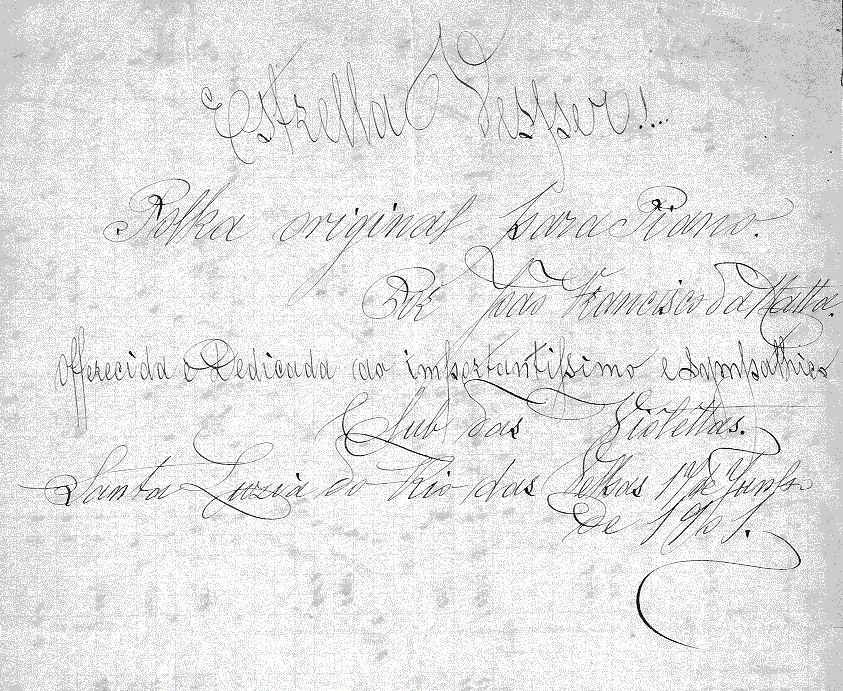 Estrella Vesper!...
Polka original para Piano.
Por João Francisco da Matta.
Offerecida e Dedicada ao importantissimo e sympathico
Club das Violettas.
Santa Luzia do Rio das Velhas 17 de Junho
de 1901.